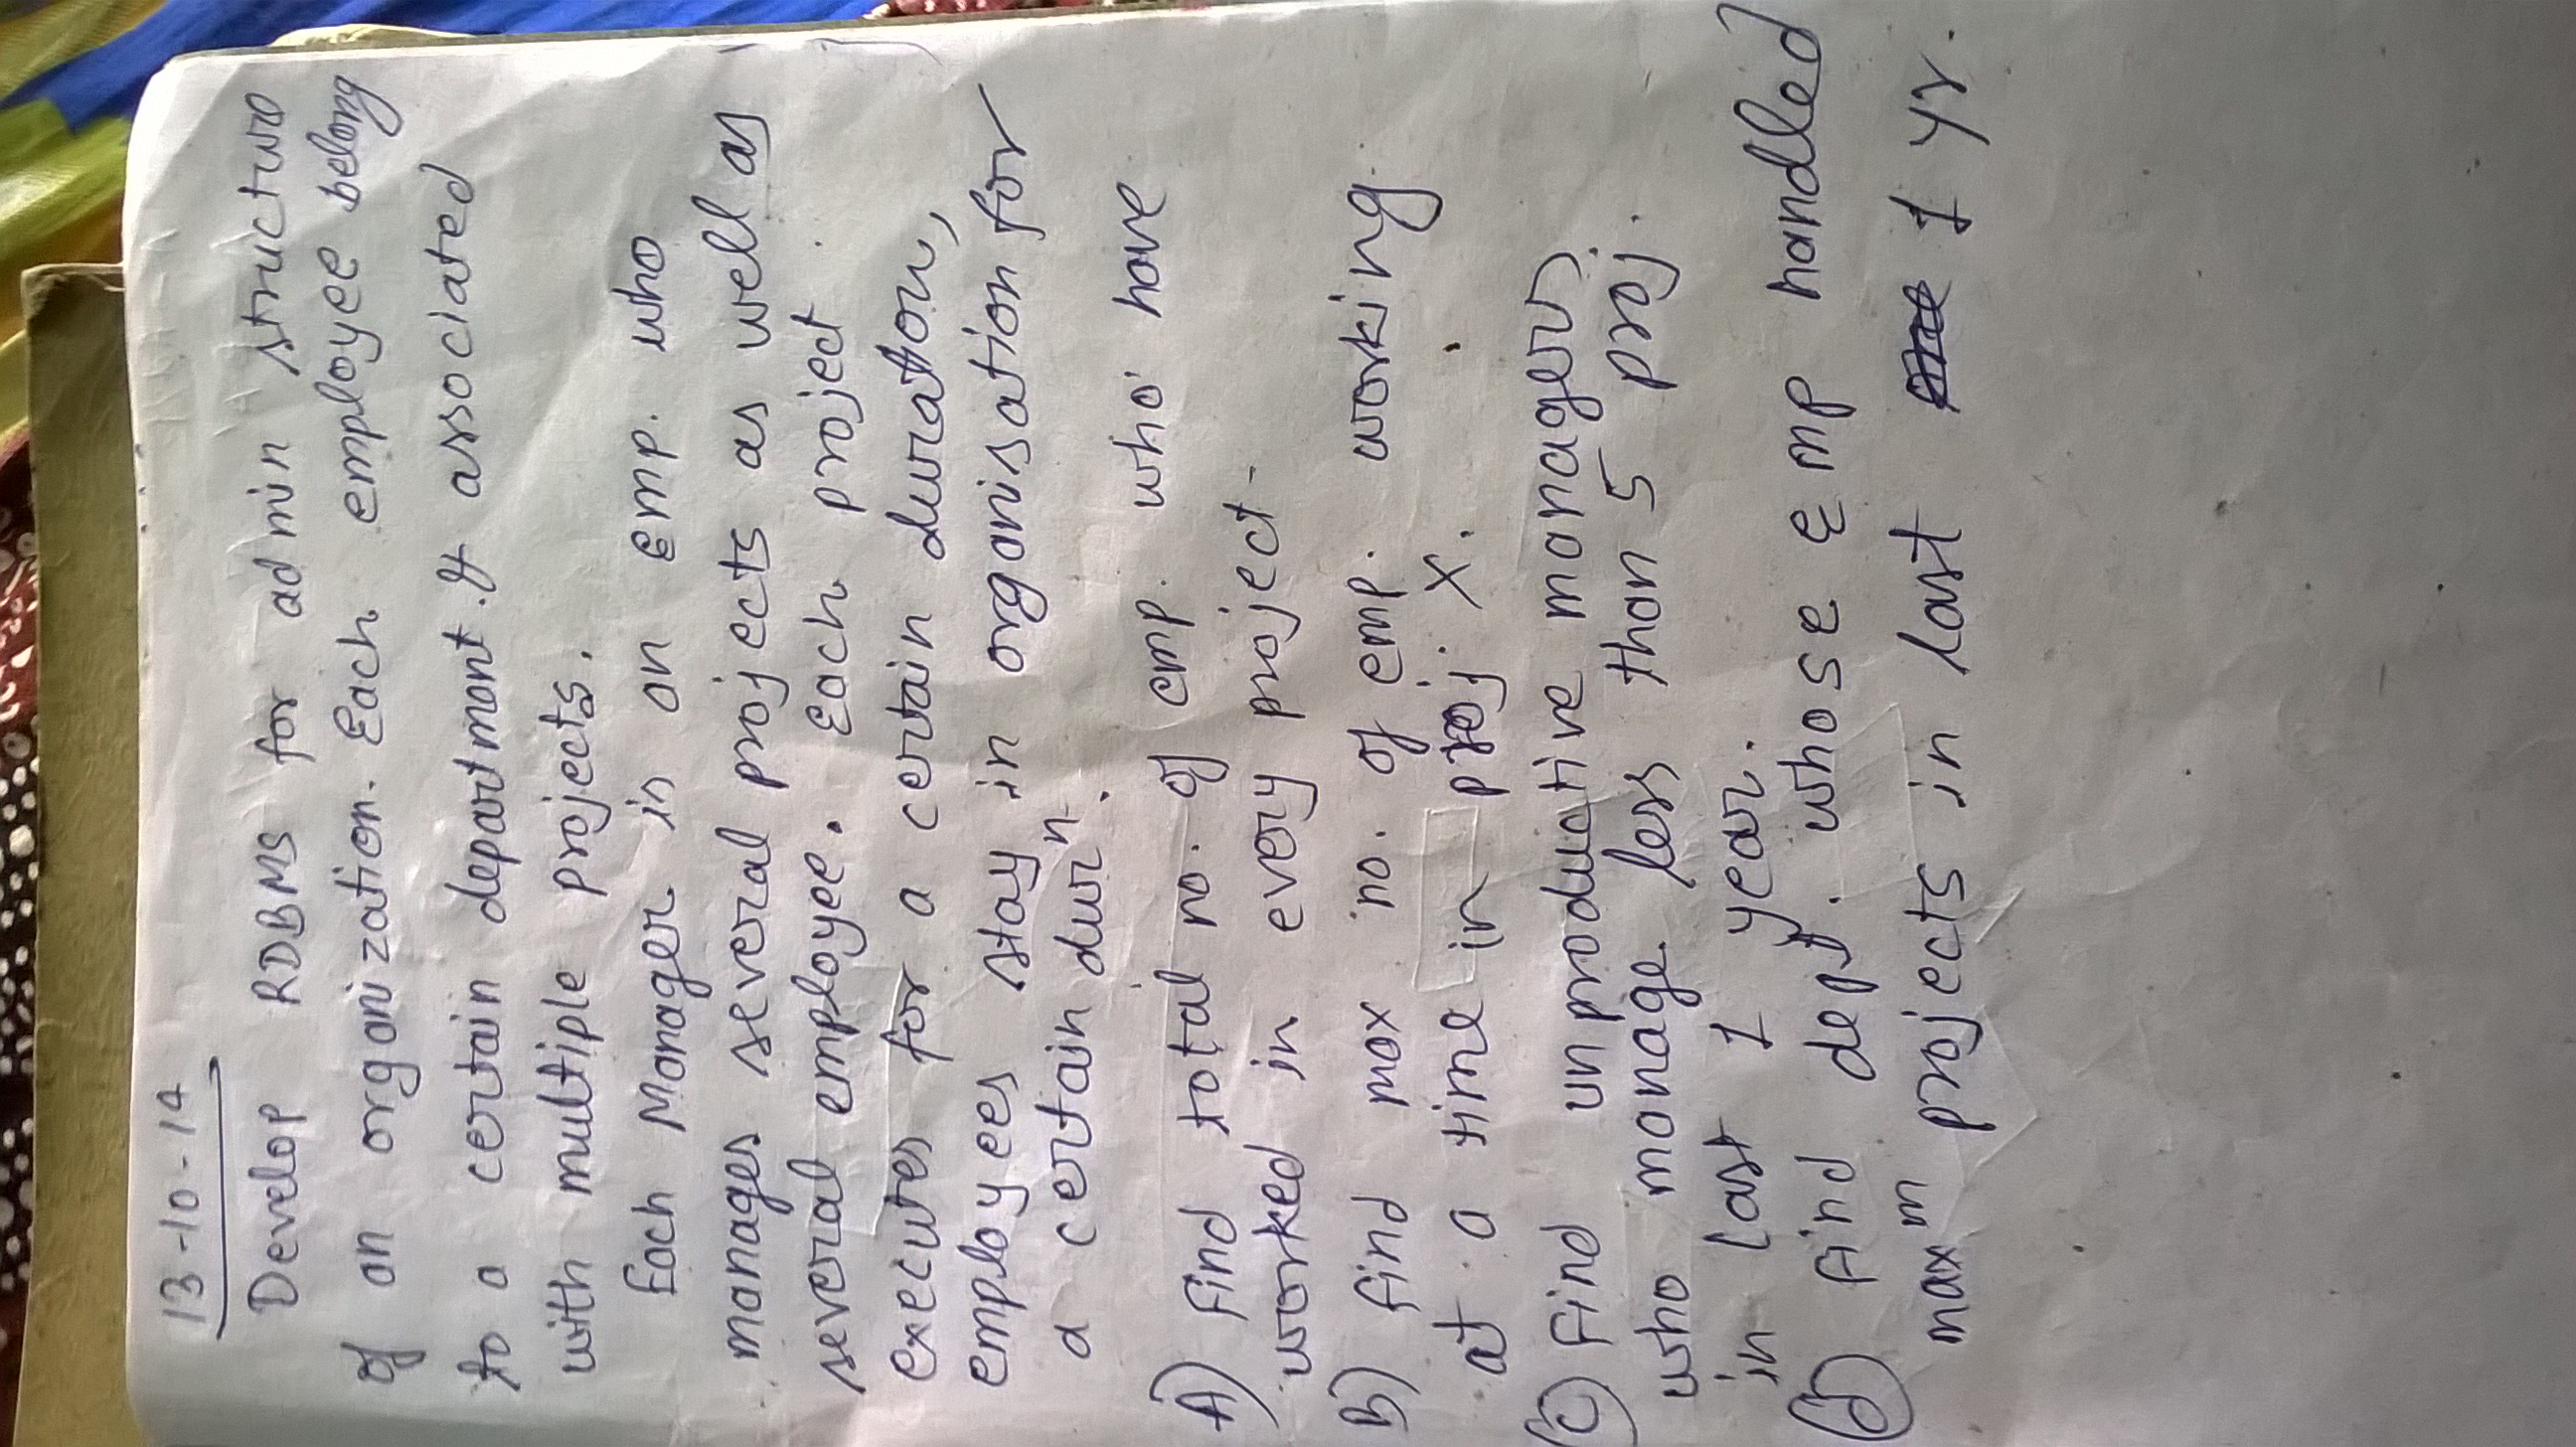 13-10-14
Develop RDBMS for admin structure
of an organization. Each employee belong
to a certain department & associated
with multiple projects.
Each Manager is an Emp. who
manages several projects as well as
several employee. Each project
executes for a certain duration,
employees stay in organisation for
a certain durⁿ.
A) Find total no. of emp. who have
worked in every project-
B) Find max no. of emp. working
at a time in proj. X.
(C) Find unproductive managers
who manage less than 5 proj.
in last 1 year.
(d) Find dept. whose Emp handled
maxᵐ projects in last 1 yr.